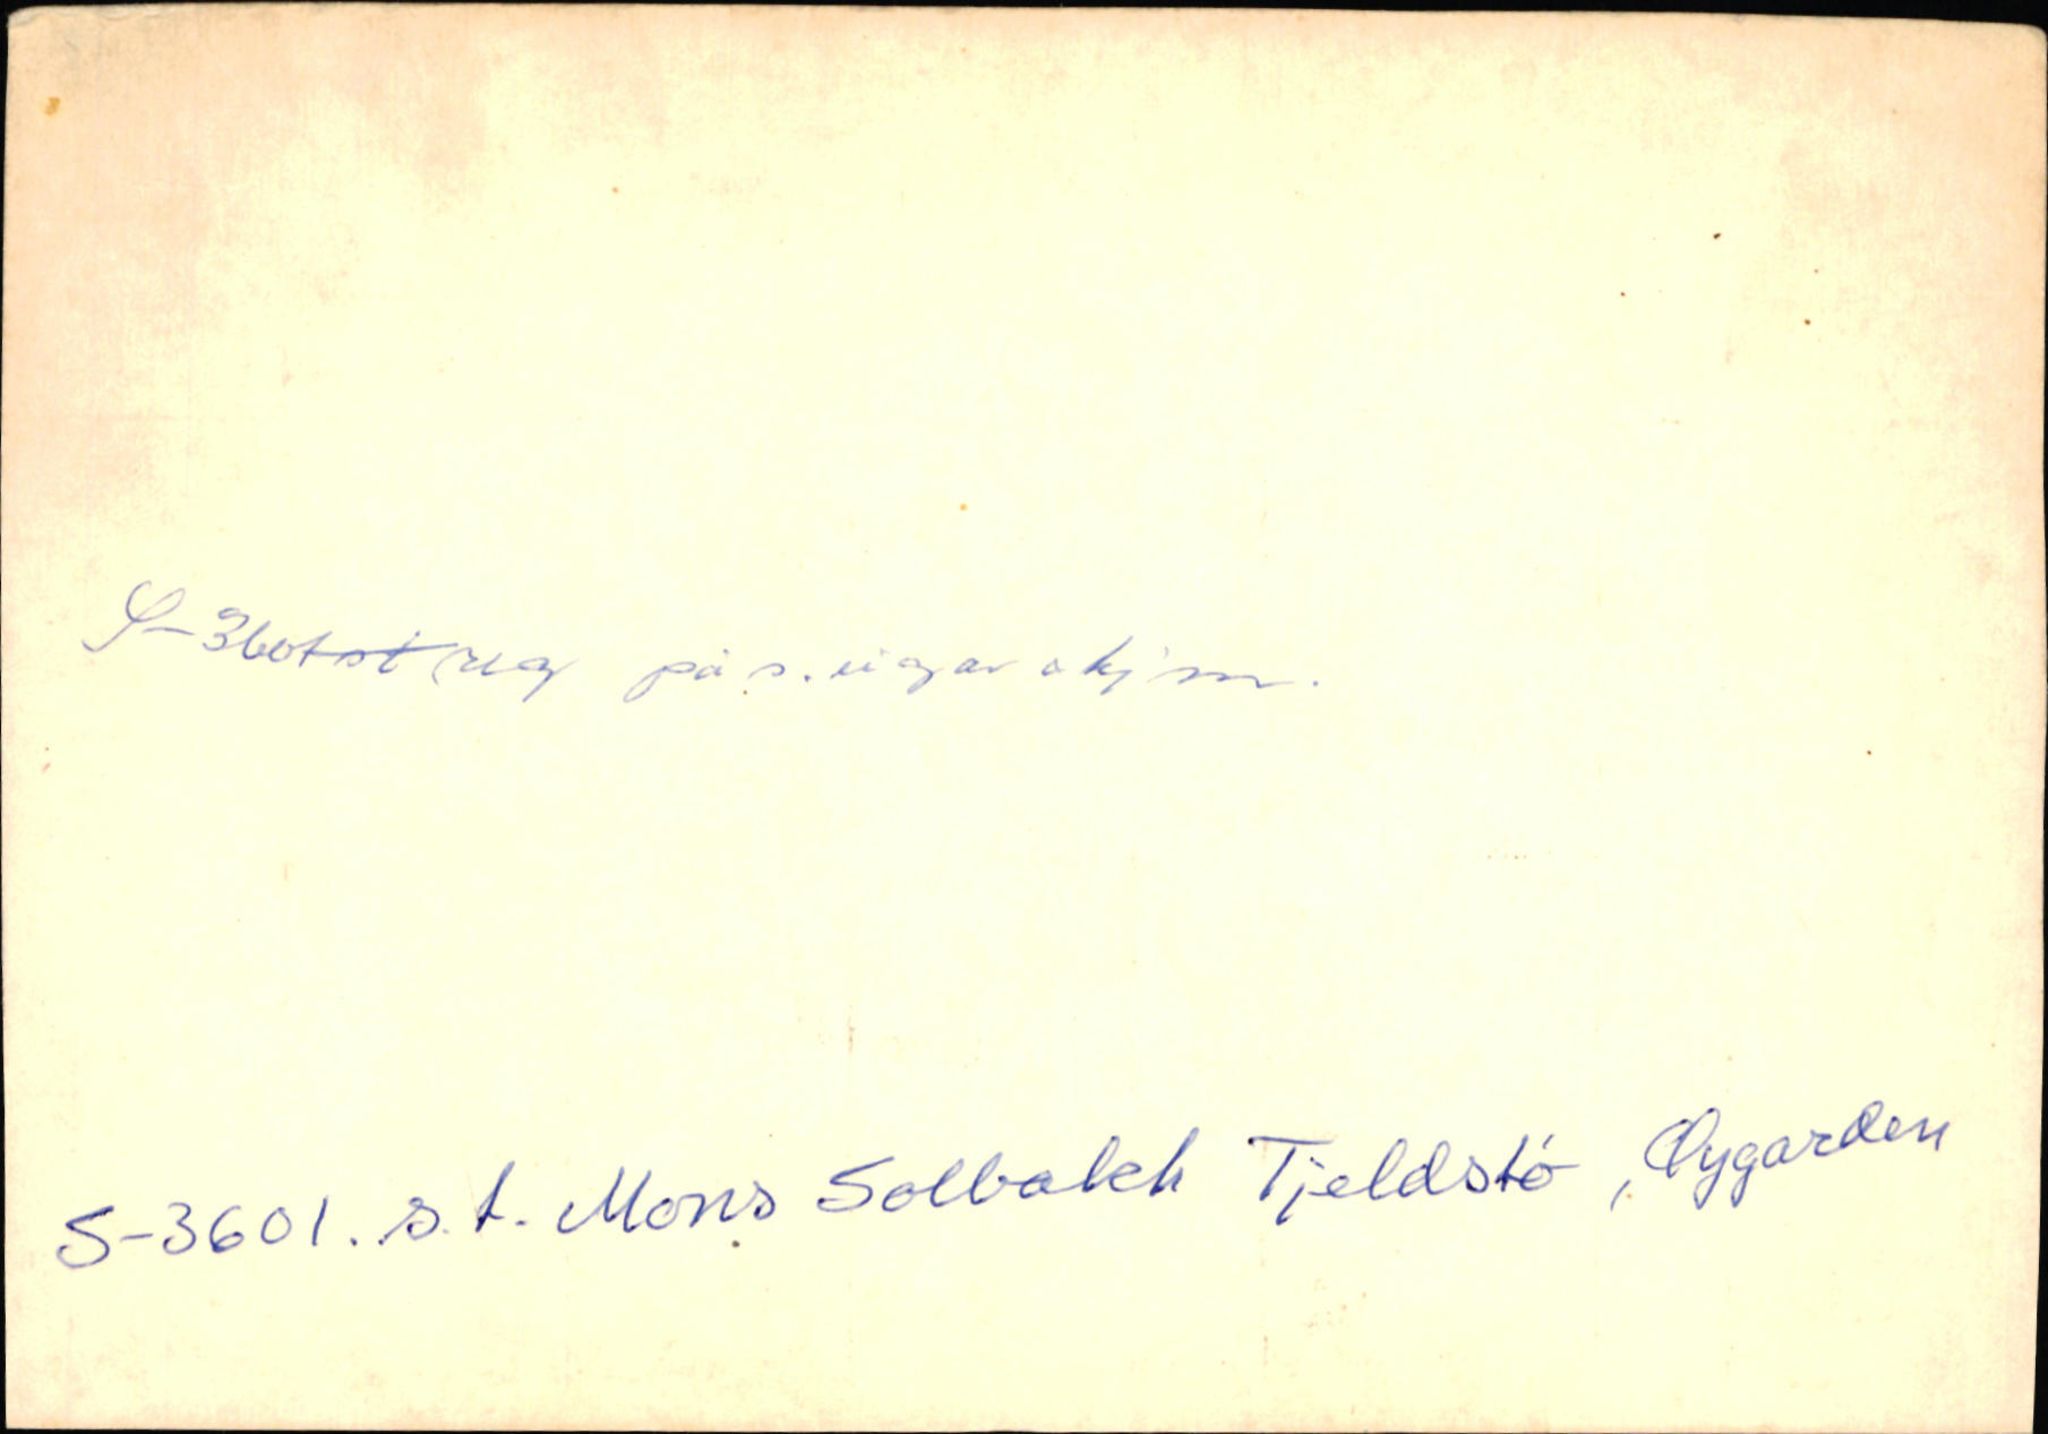 S-3601 reg på s. eigar skjm.
S-3601. s.t. Mons Solbakk Tjeldstø, Øygarden